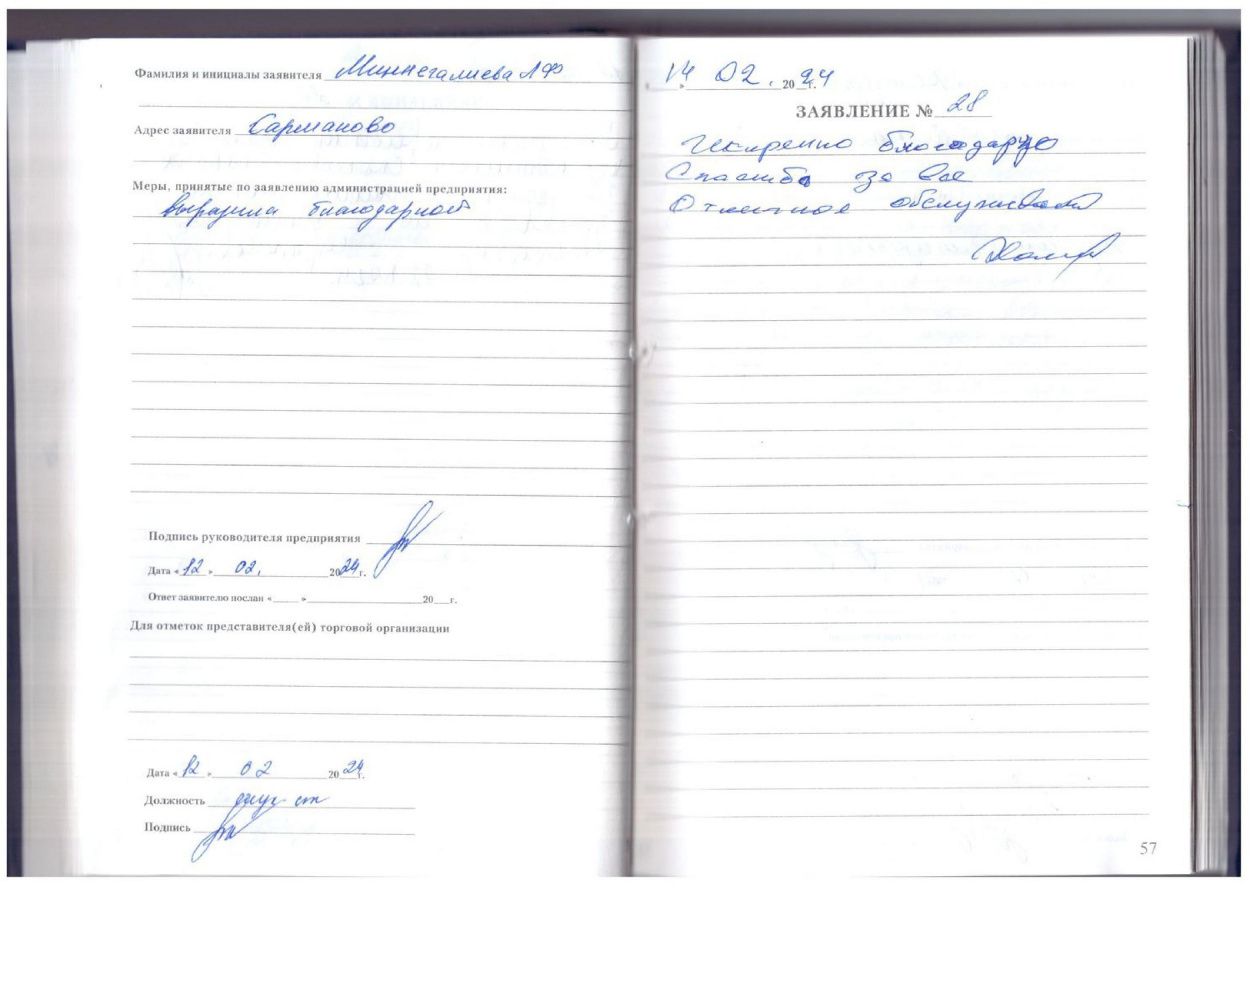 Фамилия и инициалы заявителя Миннегалиева Л Ф
Адрес заявителя Сарманово
Меры, принятые по заявлению администрацией предприятия:
выразила благодарност
Подпись руководителя предприятия
Дата «12» 02. 2024г.
Ответ заявителю послан «____» ____ 20__г.
Для отметок представителя(ей) торговой организации
Дата «12» 02 2024г.
Должность
Подпись
14 » 02 2024г.
ЗАЯВЛЕНИЕ № 28
Искренно благодарю
Спасибо за все
Отличное обслуживает
57